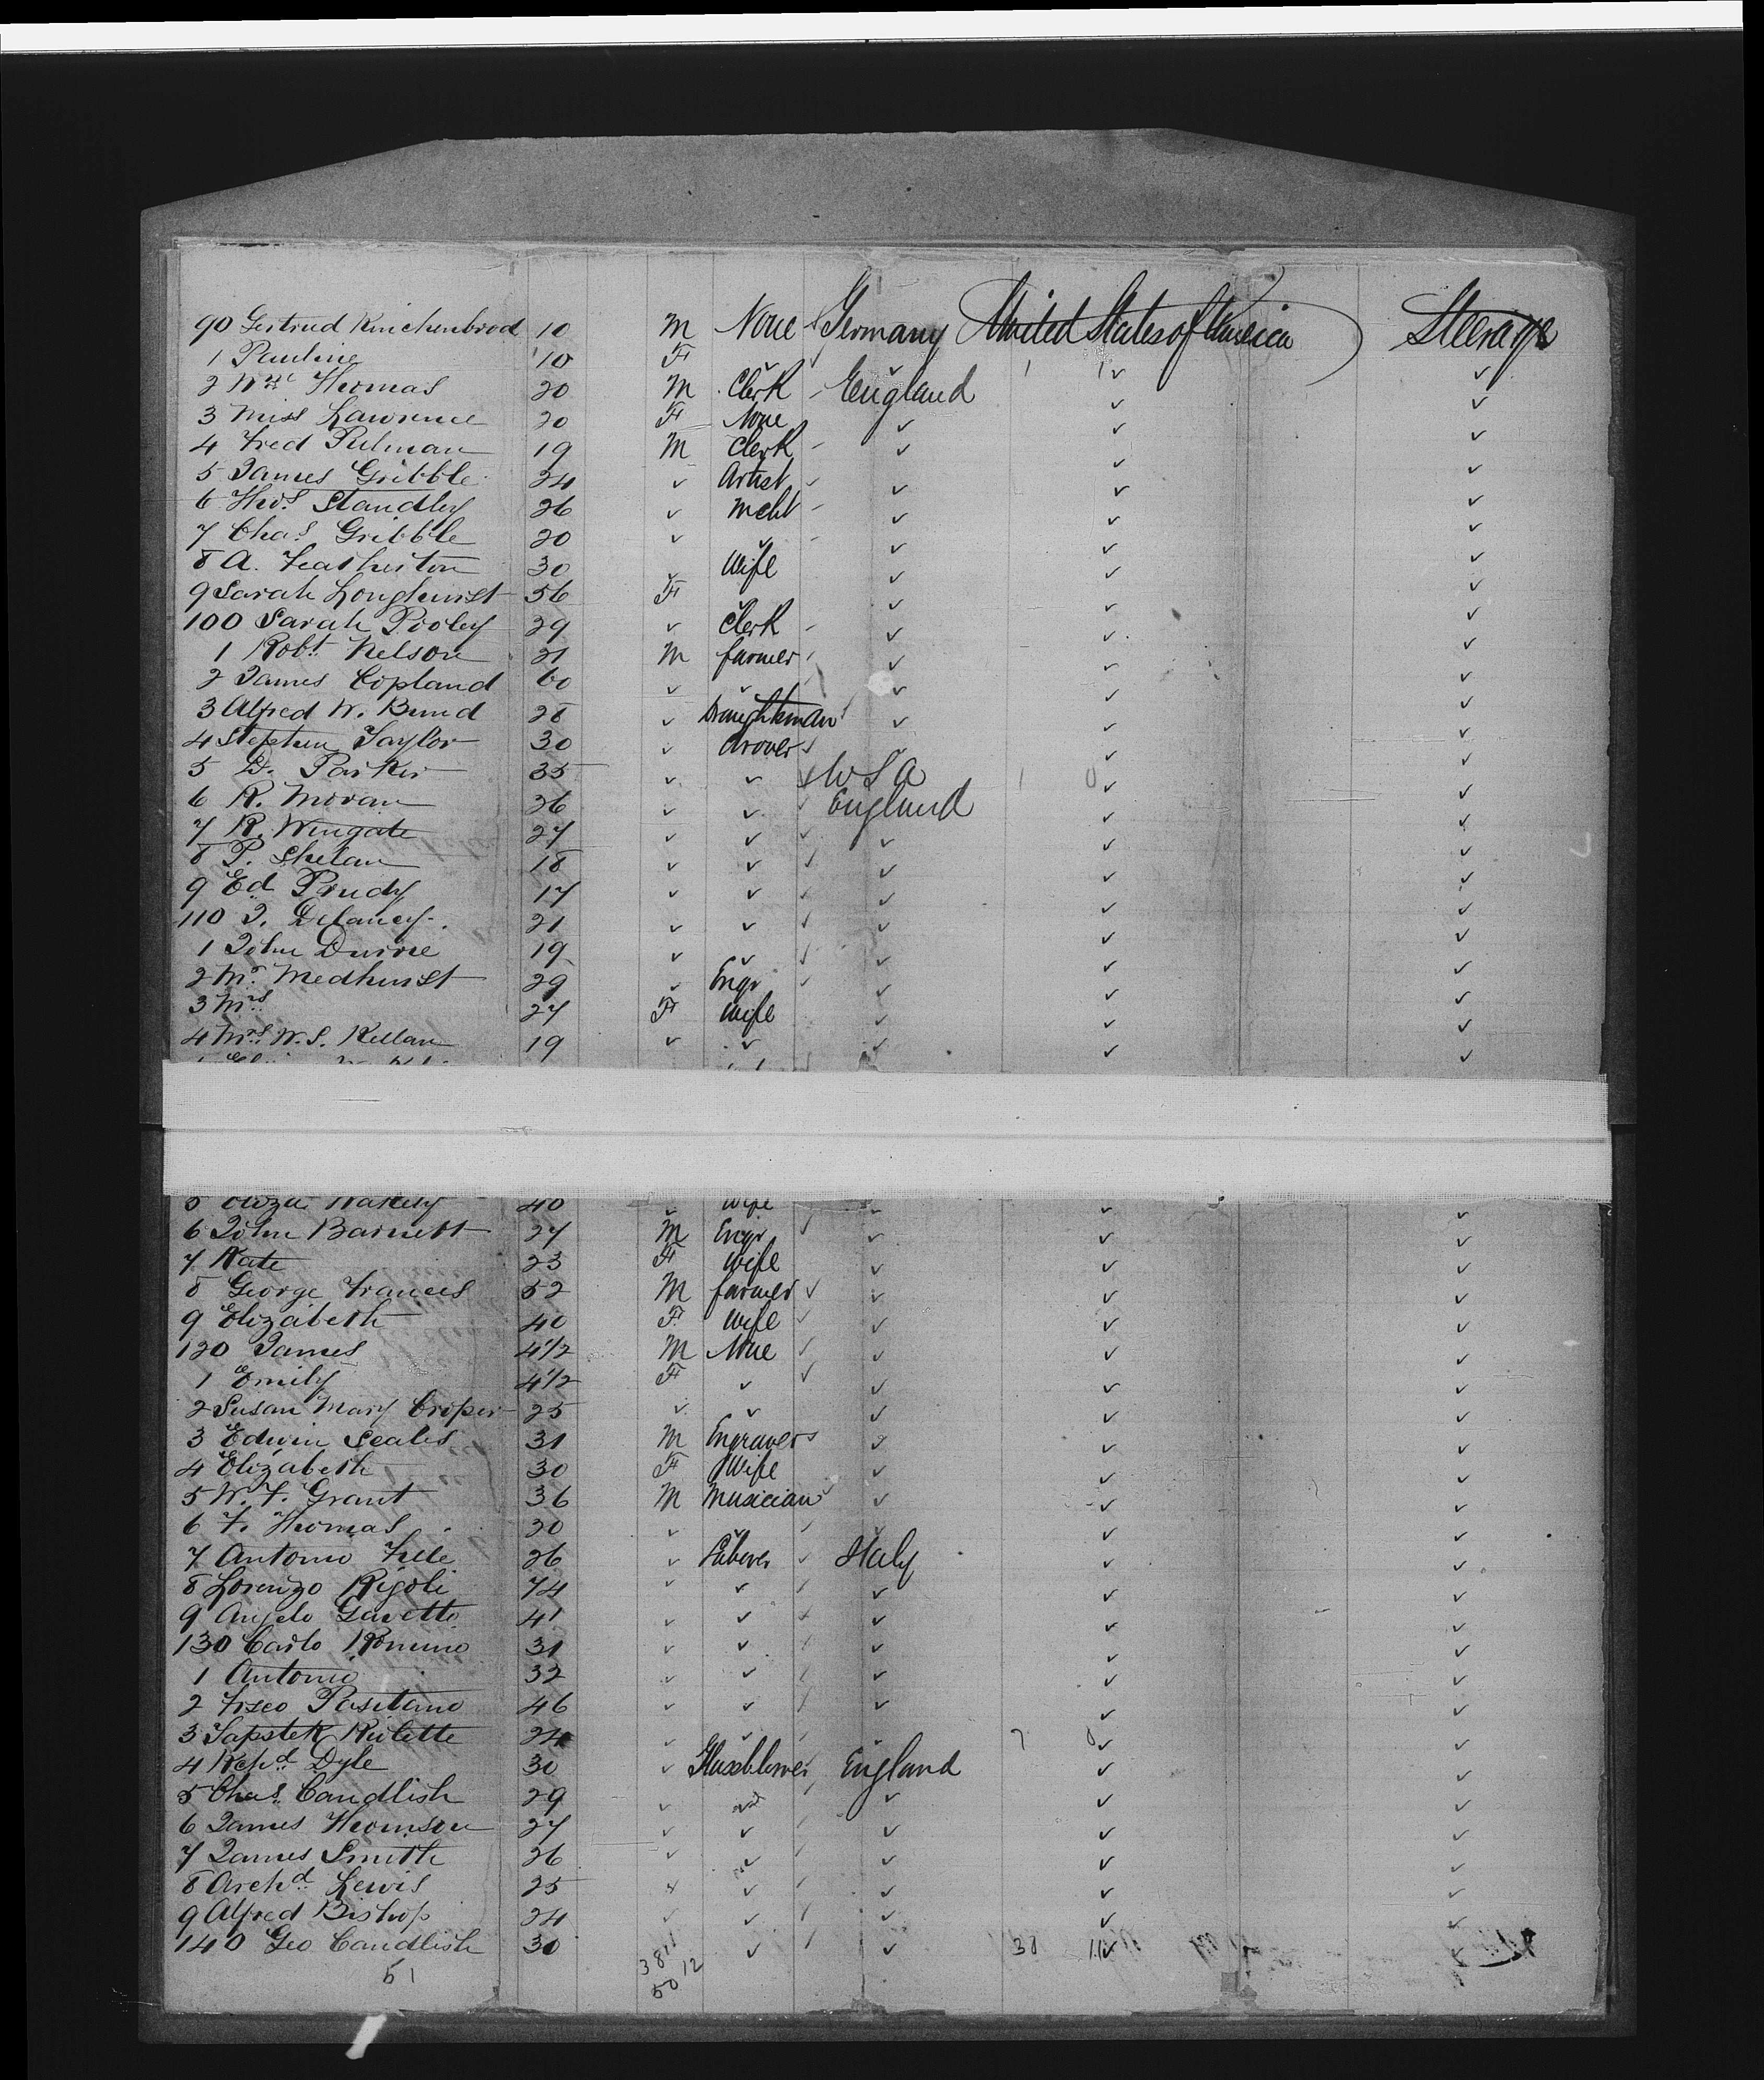 90 Gertrud Knichenbrod 10 M None Germany United States of America Steerage
1 Pauline 10 F ✓ ✓ ✓
2 Wm Thomas 20 M Clerk England ✓ ✓
3 Miss Lawrence 20 F None ✓ ✓ ✓
4 Fred Pulman 19 M Clerk ✓ ✓ ✓
5 James Gribble 24 ✓ Artist ✓ ✓ ✓
6 Thos. Standley 26 ✓ Mcht ✓ ✓ ✓
7 Chas Gribble 20 ✓ ✓ ✓ ✓ ✓
8 A. Featherston 30 ✓ Wife ✓ ✓ ✓
9 Sarah Longhurst 56 F ✓ ✓ ✓
100 Sarah Pooley 29 ✓ Clerk ✓ ✓ ✓
1 Robt. Nelson 21 M farmer ✓ ✓ ✓
2 James Copland 60 ✓ ✓ ✓ ✓ ✓
3 Alfred W. Bund 28 ✓ Draughtsman ✓ ✓ ✓
4 Stephen Taylor 30 ✓ drover ✓ ✓
5 D. Parker 35 ✓ ✓ U S A ✓ ✓
6 R. Moran 26 ✓ ✓ England ✓ ✓
7 R. Wingate 27 ✓ ✓ ✓ ✓ ✓
8 P. Shelan 18 ✓ ✓ ✓ ✓ ✓
9 Ed. Prudy 17 ✓ ✓ ✓ ✓ ✓
110 J. Delancy 21 ✓ ✓ ✓ ✓ ✓
1 John Durne 19 ✓ ✓ ✓ ✓ ✓
2 Mr. Medhurst 29 ✓ Engr ✓ ✓ ✓
3 Mrs 27 F Wife ✓ ✓ ✓
4 Mrs. W. S. Kellan 19 ✓ ✓ ✓ ✓ ✓
5 Eliza Wakely 40 ✓ Wife ✓ ✓ ✓
6 John Barnett 27 M Engr ✓ ✓ ✓
7 Kate 23 F Wife ✓ ✓ ✓
8 George Frances 52 M farmer ✓ ✓ ✓
9 Elizabeth 40 F Wife ✓ ✓ ✓
120 James 4½ M None ✓ ✓ ✓
1 Emily 4½ F ✓ ✓ ✓ ✓
2 Susan Mary Croper 25 ✓ ✓ ✓ ✓ ✓
3 Edwin Scales 31 M Engraver ✓ ✓ ✓
4 Elizabeth 30 F Wife ✓ ✓ ✓
5 W. F. Grant 36 M Musician ✓ ✓ ✓
6 F. Thomas 20 ✓ ✓ ✓ ✓ ✓
7 Antonio 26 ✓ Laborer Italy ✓ ✓
8 Lorenzo Rigoli 74 ✓ ✓ ✓ ✓ ✓
9 Angelo Gavetto 41 ✓ ✓ ✓ ✓ ✓
130 Carlo Romino 31 ✓ ✓ ✓ ✓ ✓
1 Antonio 32 ✓ ✓ ✓ ✓ ✓
2 Fsco Pasitano 46 ✓ ✓ ✓ ✓ ✓
3 Rilette 24 ✓ ✓ ✓ ✓
4 Rchd. Dyle 30 ✓ Glassblower England ✓ ✓
5 Chas. Candlish 29 ✓ ✓ ✓ ✓ ✓
6 James Thomson 27 ✓ ✓ ✓ ✓ ✓
7 James Smith 26 ✓ ✓ ✓ ✓ ✓
8 Archd. Lewis 25 ✓ ✓ ✓ ✓ ✓
9 Alfred Bishop 24 ✓ ✓ ✓ ✓ ✓
140 Geo Candlish 30 ✓ ✓ 38 ✓ ✓
51 38 12
50